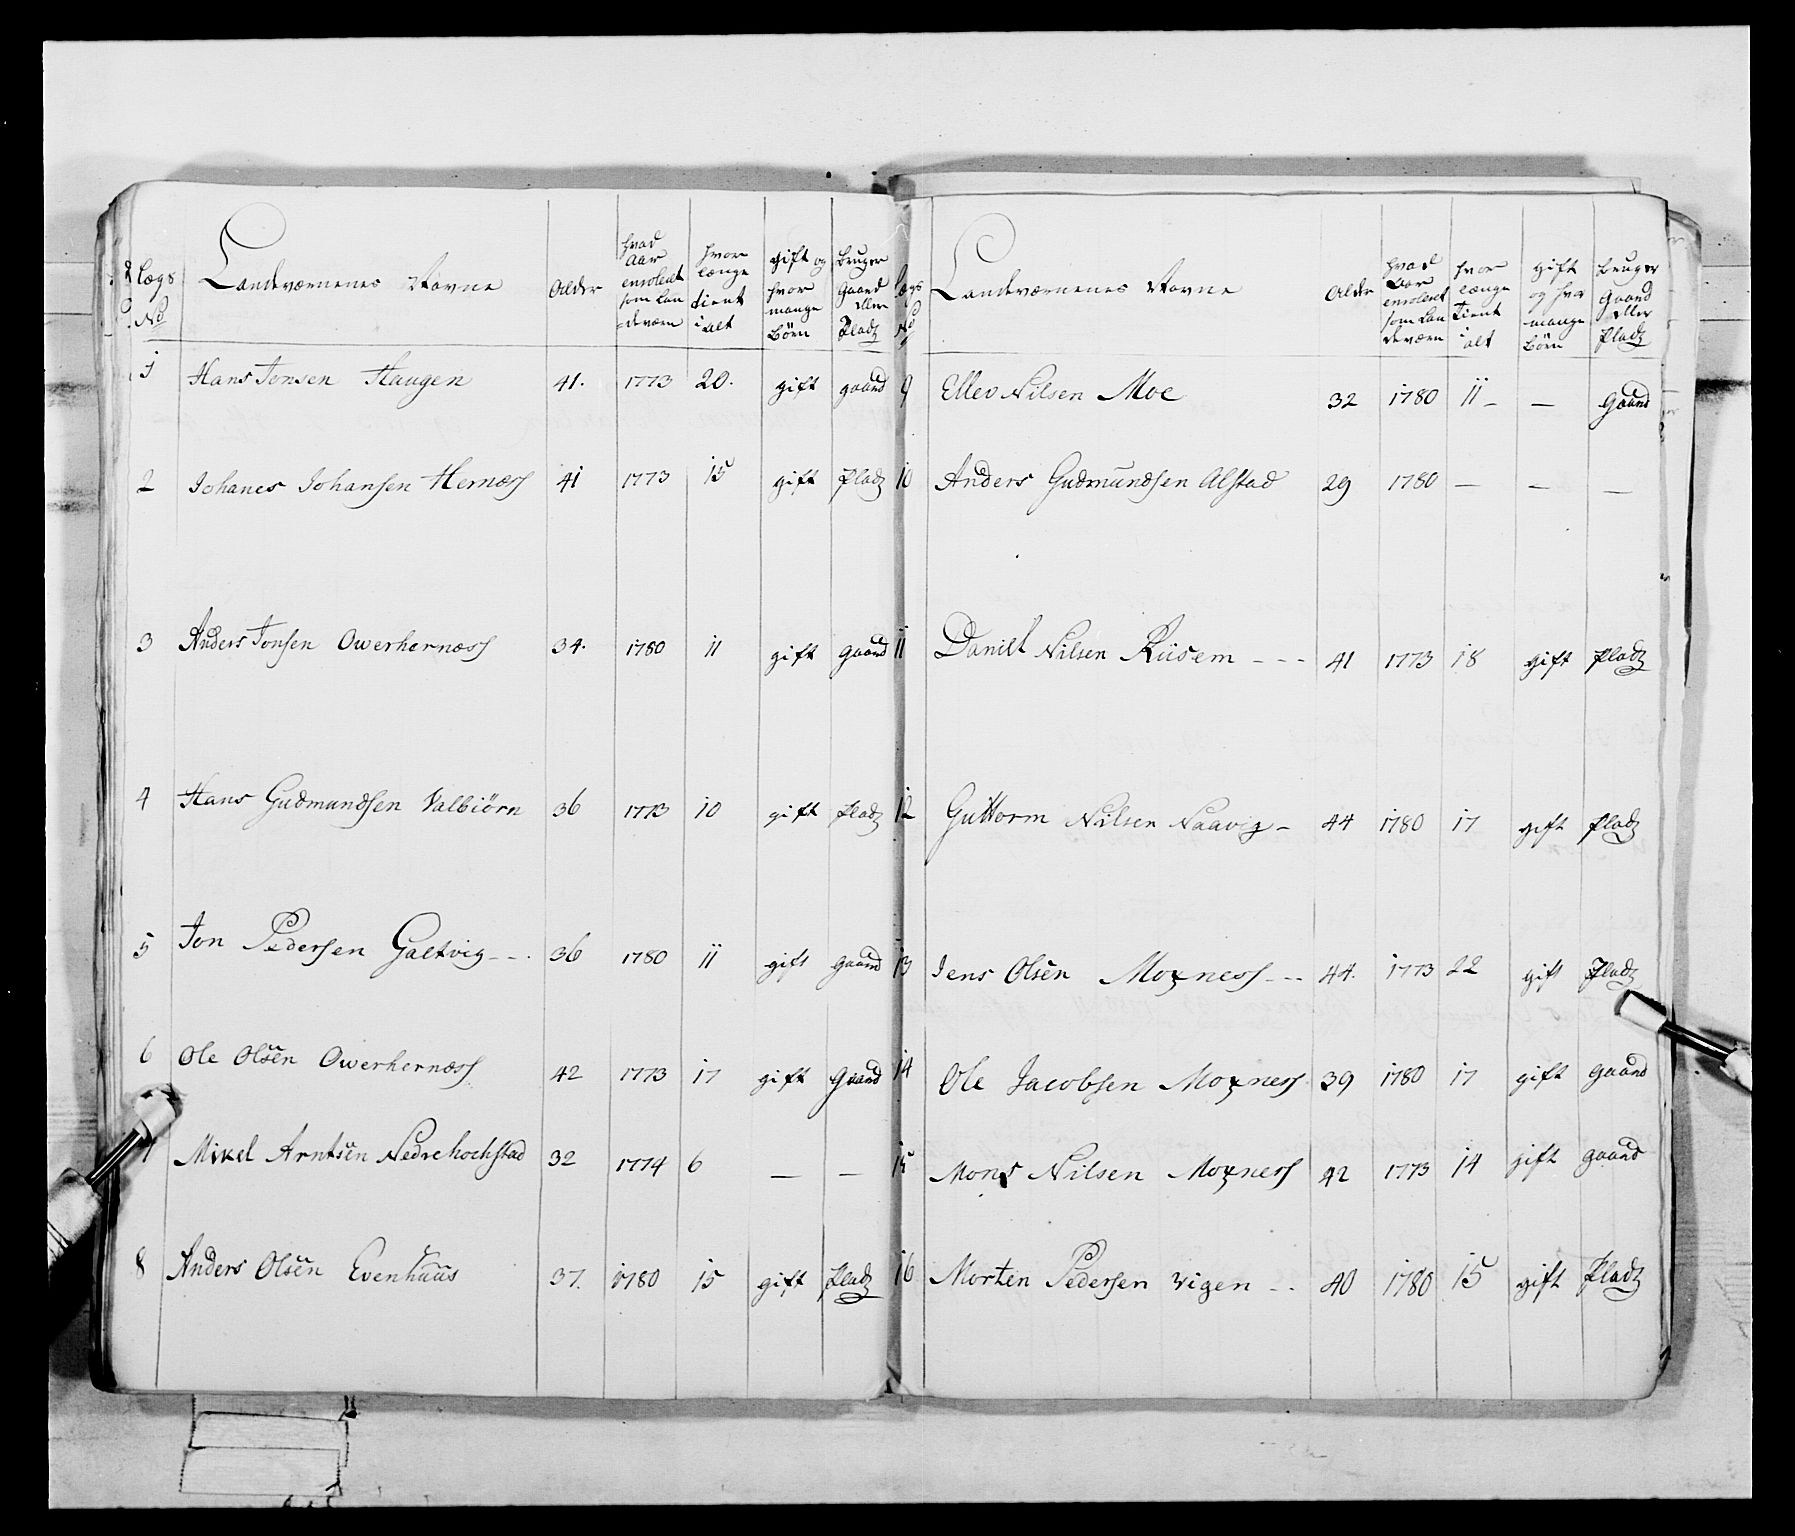 Lægs No
Landværnenes Navne
Alder
hvad Aar enrolert som Landeværn
hvor længe tient i alt
gift og hvor mange Börn
bruger Gaard eller Pladz
1 Hans Jonsen Haugen 41. 1773 20. gift gaard
2 Johanes Johansen Hernæss 41 1773 15 gift Pladz
3 Anders Jonsen Owerhernæss 34. 1780 11 gift gaard
4 Hans Gudmundsen Valbiörn 36 1773 10 gift Pladz
5 Jon Pedersen Galtvig --. 36 1780 11 gift gaard
6 Ole Olsen Owerhernæss 42 1773 17 gift Gaard
7 Mikel Arntsen Nedrehochstad 32 1774 6 — —
8 Anders Olsen Evenhuus 37. 1780 15 gift Pladz
Lægs No
Landeværnenes Navne
Alder
hvad Aar enroleret som Landeværn
hvor længe tient i alt
gift og hvor mange Börn
bruger Gaard eller Pladz
9 Ellev Nilsen Moe 32 1780 11 - — Gaard
10 Anders Gudmundsen Alstad 29 1780 — — —
11 Danielt Nilsen Riisem --- 41 1773 18 gift Pladz
12 Guttorm Nilsen Naavig - 44 1780 17 gift Pladz
13 Jens Olsen Moxness --- 44. 1773 22 gift Pladz
14 Ole Jacobsen Moxness 39 1780 17 gift gaard
15 Mons Nilsen Moxness 42 1773 14 gift gaard
16 Morten Pedersen Vigen -- 40 1780 15 gift Pladz